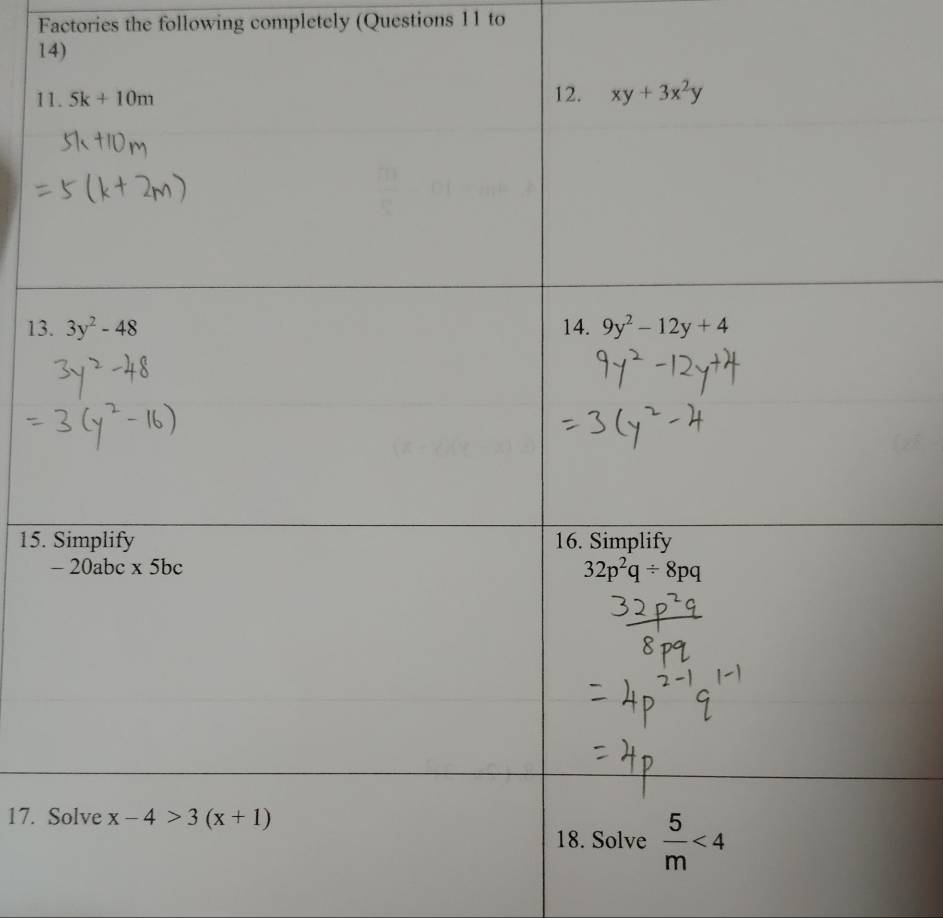 Factories the following completely (Questions 11 to
14)
11. 5k + 10m
5k+10m
= 5(k+2m)
12. xy + 3x²y
13. 3y² - 48
3y² -48
= 3(y² - 16)
14. 9y² – 12y + 4
9y² -12y+4
= 3(y² - 4
15. Simplify
– 20abc x 5bc
16. Simplify
32p²q ÷ 8pq
32p²q
8pq
= 4p²⁻¹ q¹⁻¹
= 4p
17. Solve x – 4 > 3 (x + 1)
18. Solve 5/m < 4